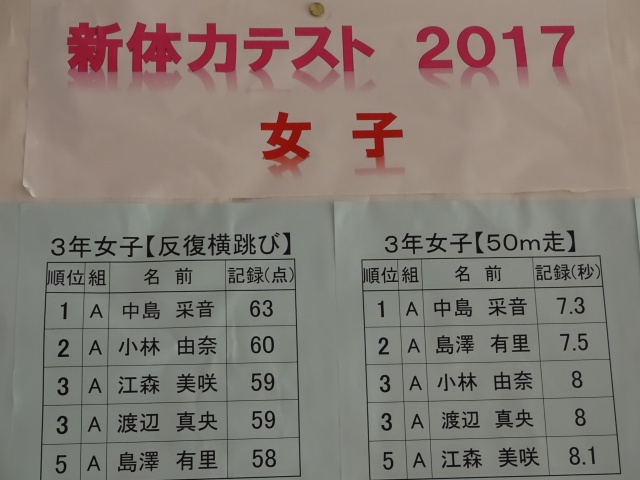 新体力テスト 2017
女子
3年女子【反復横跳び】
順位 組 名前 記録(点)
1 A 中島 采音 63
2 A 小林 由奈 60
3 A 江森 美咲 59
3 A 渡辺 真央 59
5 A 島澤 有里 58
3年女子【50m走】
順位 組 名前 記録(秒)
1 A 中島 采音 7.3
2 A 島澤 有里 7.5
3 A 小林 由奈 8
3 A 渡辺 真央 8
5 A 江森 美咲 8.1